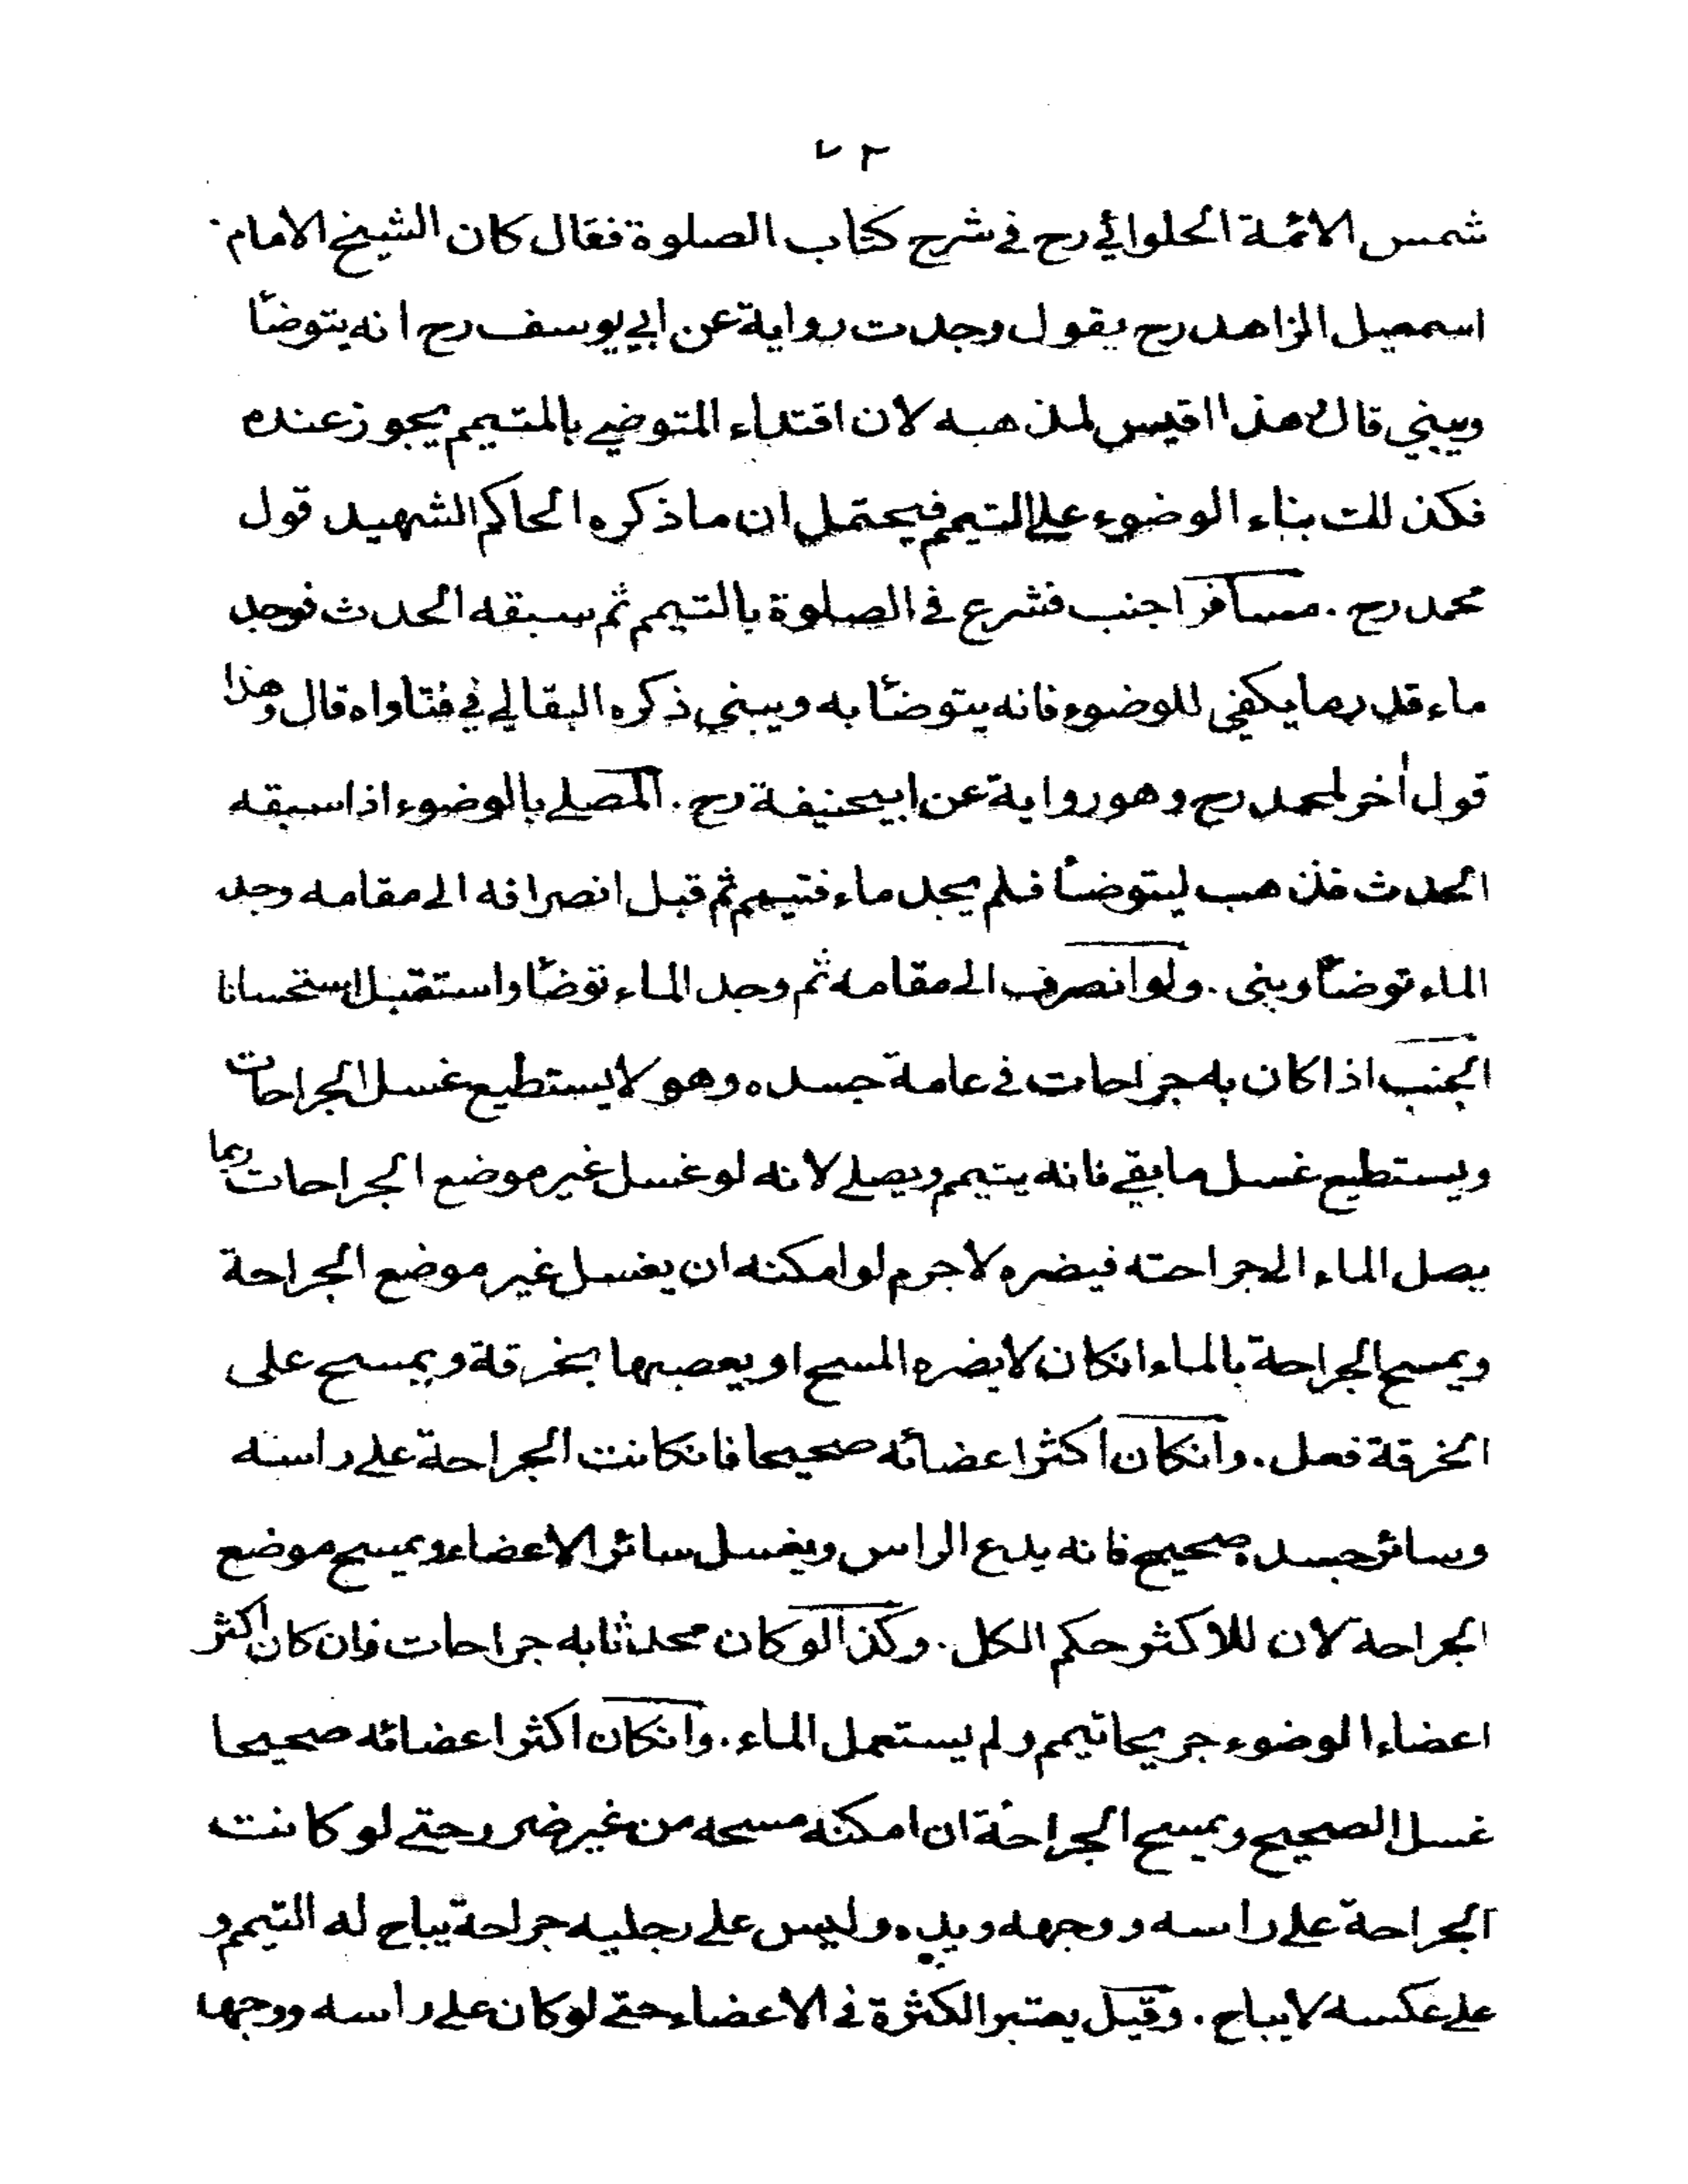 ٧٢
شمس الائمة الحلوائي رح في شرح كتاب الصلوة فقال كان الشيخ الامام
اسمعيل الزاهد رح يقول وجدت رواية عن ابي يوسف رح انه يتوضأ
ويبني قال هذا اقيس لمذهبه لان اقتداء المتوضي بالمتيمم يجوز عنده
فكذلك بناء الوضوء على التيمم فيحتمل ان ما ذكره الحاكم الشهيد قول
محمد رح . مسافر اجنب فشرع في الصلوة بالتيمم ثم سبقه الحدث فوجد
ماء قدر ما يكفي للوضوء فانه يتوضأ به ويبني ذكره البقالي في فتاواه قال وهذا
قول اخر لمحمد رح وهو رواية عن ابيحنيفة رح . المصلي بالوضوء اذا سبقه
الحدث فذهب ليتوضأ فلم يجد ماء فتيمم ثم قبل انصرافه الى مقامه وجد
الماء توضأ وبنى . ولو انصرف الى مقامه ثم وجد الماء توضأ واستقبل استحسانا
الجنب اذا كان به جراحات في عامة جسده وهو لا يستطيع غسل الجراحات
ويستطيع غسل ما بقي فانه يتيمم ويصلي لانه لو غسل غير موضع الجراحات ربما
يصل الماء الى جراحته فيضره لاجرم لو امكنه ان يغسل غير موضع الجراحة
ويمسح الجراحة بالماء انكان لا يضره المسح او يعصبها بخرقة ويمسح على
الخرقة فعل . وانكان اكثر اعضائه صحيحا فانكانت الجراحة على راسه
وسائر جسده صحيح فانه يدع الراس ويغسل سائر الاعضاء ويمسح موضع
الجراحة لان للاكثر حكم الكل . وكذا لو كان محدثا به جراحات فان كان اكثر
اعضاء الوضوء جريحا تيمم ولم يستعمل الماء . وانكان اكثر اعضائه صحيحا
غسل الصحيح ويمسح الجراحة ان امكنه مسحه من غير ضرر حتى لو كانت
الجراحة على راسه ووجهه ويده وليس على رجليه جراحة يباح له التيمم و
على عكسه لا يباح . وقيل يعتبر الكثرة في الاعضاء حتى لو كان على راسه ووجهه